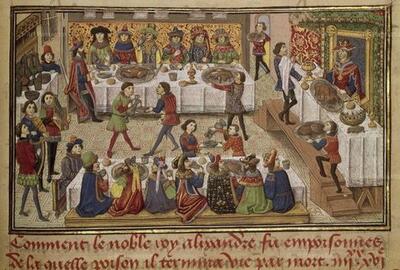 Comment le noble roy alixandre fu empoisonnez
de la quelle poison il termina vie par mort.